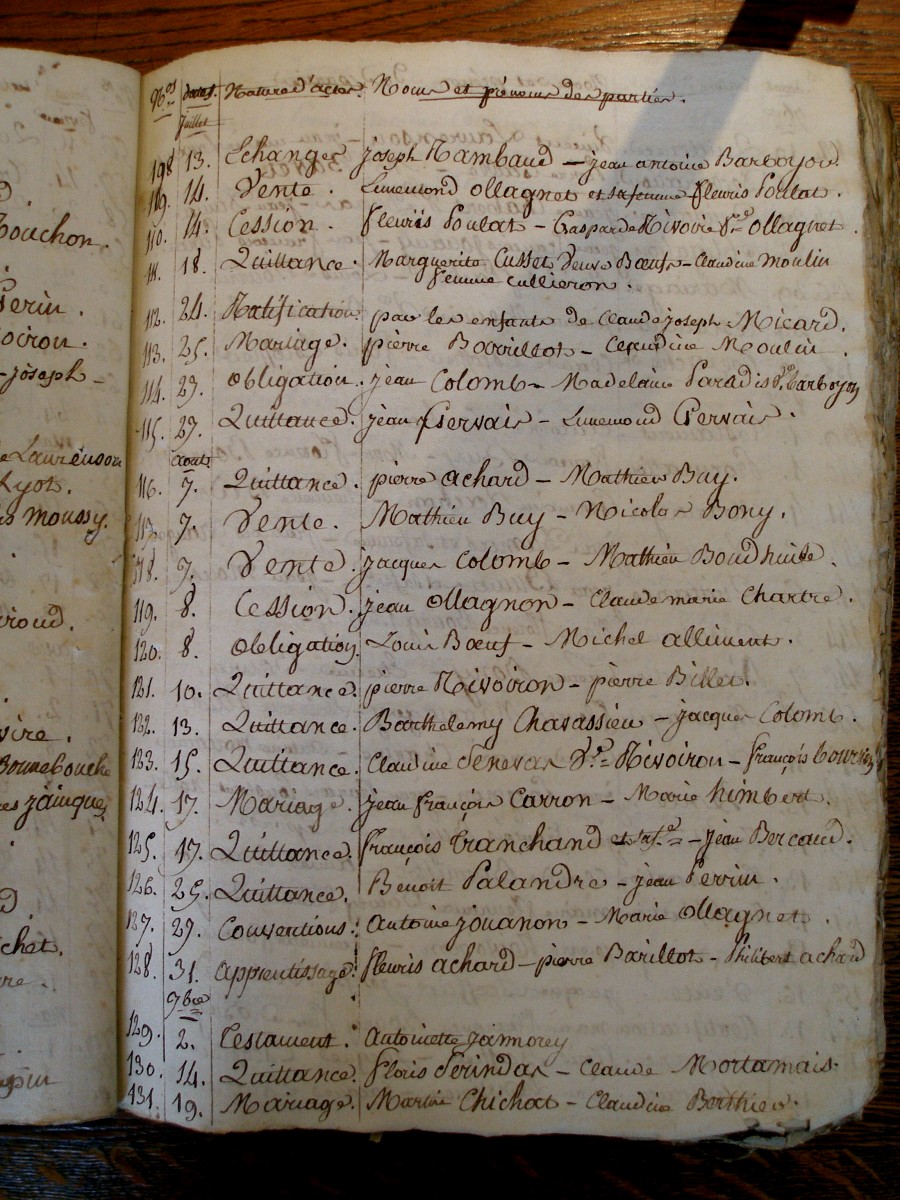 Nos dates. Nature d'actes. Noms et prénoms des parties.
Juillet
108 13. Echange joseph Rambaud – jean antoine Barboyou.
109. 14. Vente. Ennemond Ollagnet et sa femme fleurie Poulat.
110. 14. Cession. fleuris Poulat – Gasparde Rivoire Ve Ollagnet.
111. 18. Quittance. Marguerite Cusset Veuve Bœuf – Claudine Moulin
femme cullieron.
112. 24. Ratification. par les enfants de Claude joseph Micard.
113. 25. Mariage. pierre Barrillot – Claudine Moulin.
114. 27. Obligation. jean Colomb – Madelaine Paradis Ve barboyon
115. 29. Quittance. jean Gervais – Ennemond Gervais.
août
116. 7. Quittance. pierre achard – Mathieu Buy.
117. 7. Vente. Mathieu Buy – Nicolas Bony.
118. 7. Vente. jacques Colomb – Mathieu Boudhuile.
119. 8. Cession. jean Ollagnon – Claude marie Chartre.
120. 8. Obligation. Louis Bœuf – Michel alliment.
121. 10. Quittance. pierre Rivoiron – pierre Billet.
122. 13. Quittance. Barthelemy Chavassieu – jacques Colomb.
123. 15. Quittance. Claudine Ve Rivoiron – françois
124. 17. Mariage. jean françois Carron – Marie himbert.
125. 17. Quittance. françois Tranchand et sa fe – jean Bercaud.
126. 25. Quittance. Benoit Palandre – jean Perrin.
127. 29. Conventions. Antoine jouanon – Marie Ollagnet.
128. 31. apprentissage. fleuris achard – pierre Barillot – Philibert achard
9bre
129. 2. Testament. Antoinette jamorey
130. 14. Quittance. floris – Claude Mortamais.
131. 19. Mariage. Martin Chichat – Claudine Berthier.
ouchon.
Perin.
oiron.
-joseph –
Laurenson
Lyot.
moussy.
iroud.
vire.
Bonnebouche
jainques
chet.